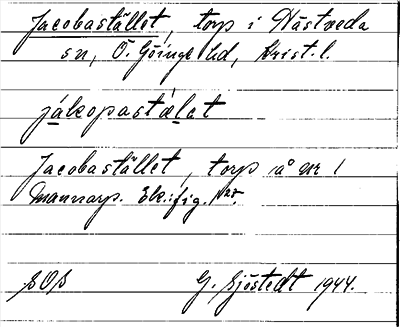 Jacobastället, torp i Hästveda
sn, Ö. Göinge hd, Krist. l.
jákopastælet
Jacobastället, torp på nr 1
Mannarp. Ek.; fig.
SOS G. Sjöstedt 1944.